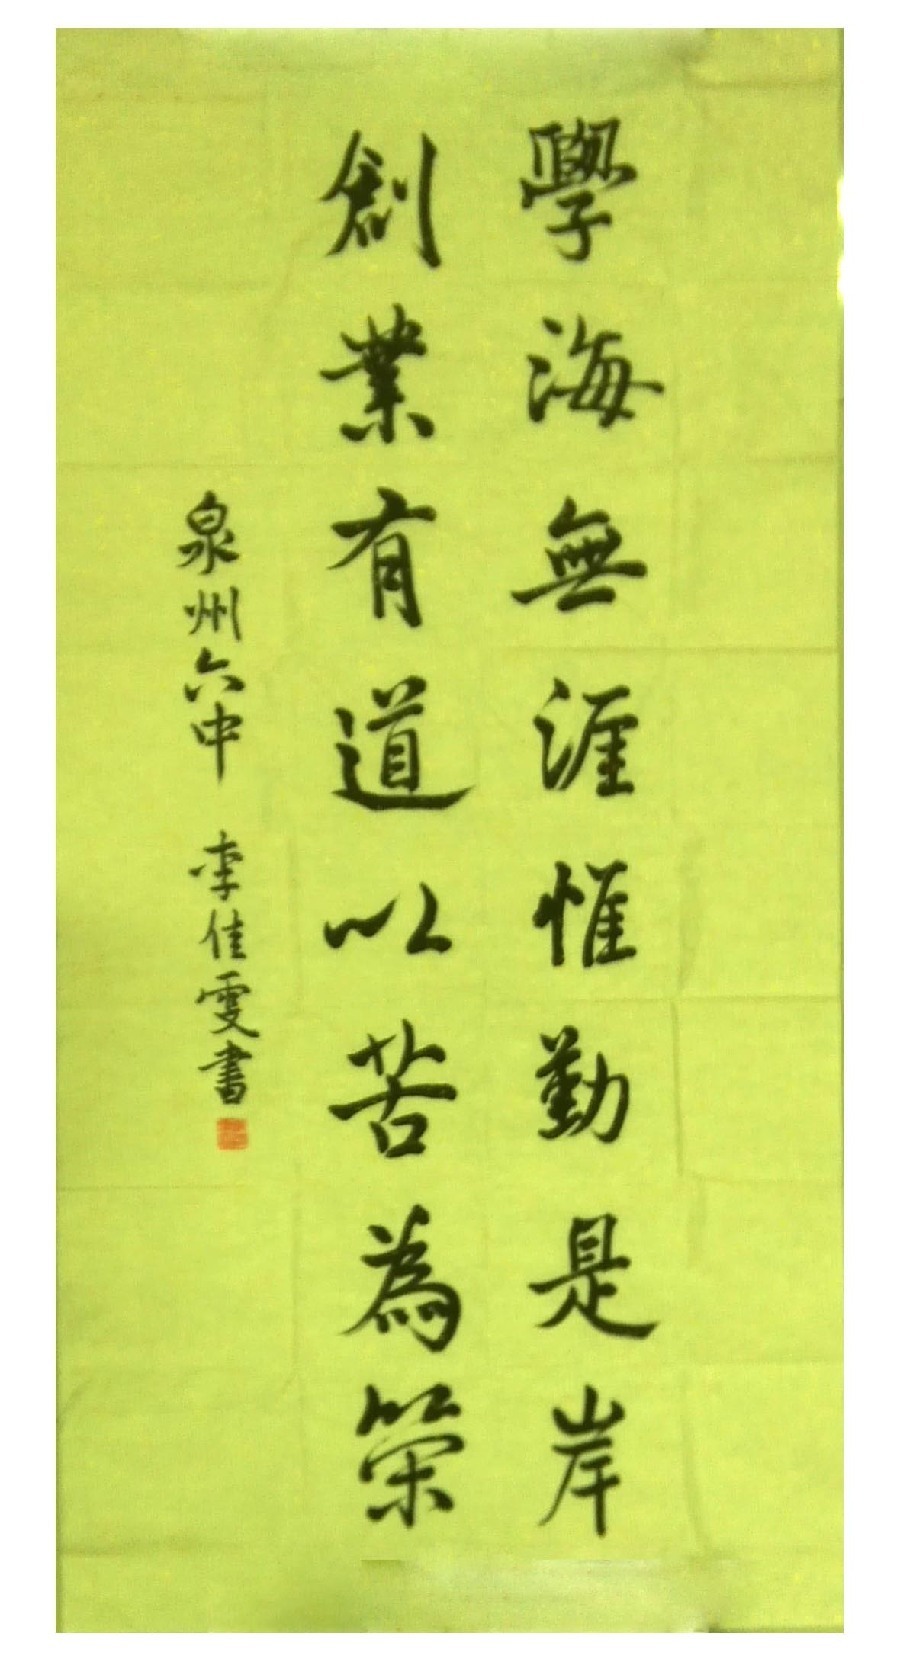 學海無涯惟勤是岸
創業有道以苦為策
泉州六中 李佳雯書